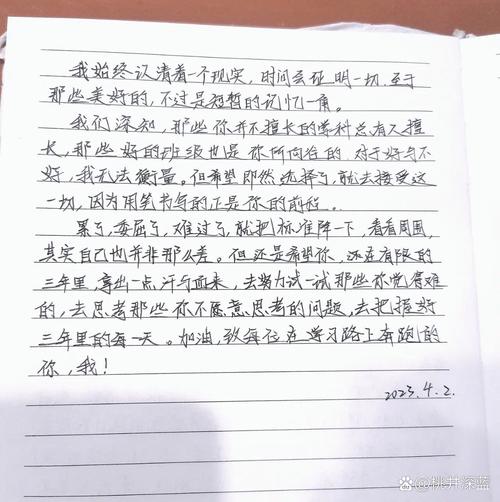 我始终认清着一个现实,时间会证明一切.至于
那些美好的,不过是短暂的记忆一角。
我们深知,那些你并不擅长的学科总有人擅
长,那些好的班级也是你所向往的.对于好与不
好,我无法衡量。但希望即然选择了,就去接受这
一切,因为用笔书写的正是你的前程。
累了,委屈了,难过了,就把标准降一下,看看周围,
其实自己也并非那么差。但还是希望你,还在有限的
三年里,拿出一点汗与血来,去努力试一试那些你觉得难
的,去思考那些你不愿意思考的问题,去把握好
三年里的每一天。加油,致每位在学习路上奔跑的
你,我!
2023.4.2.
桃井深蓝